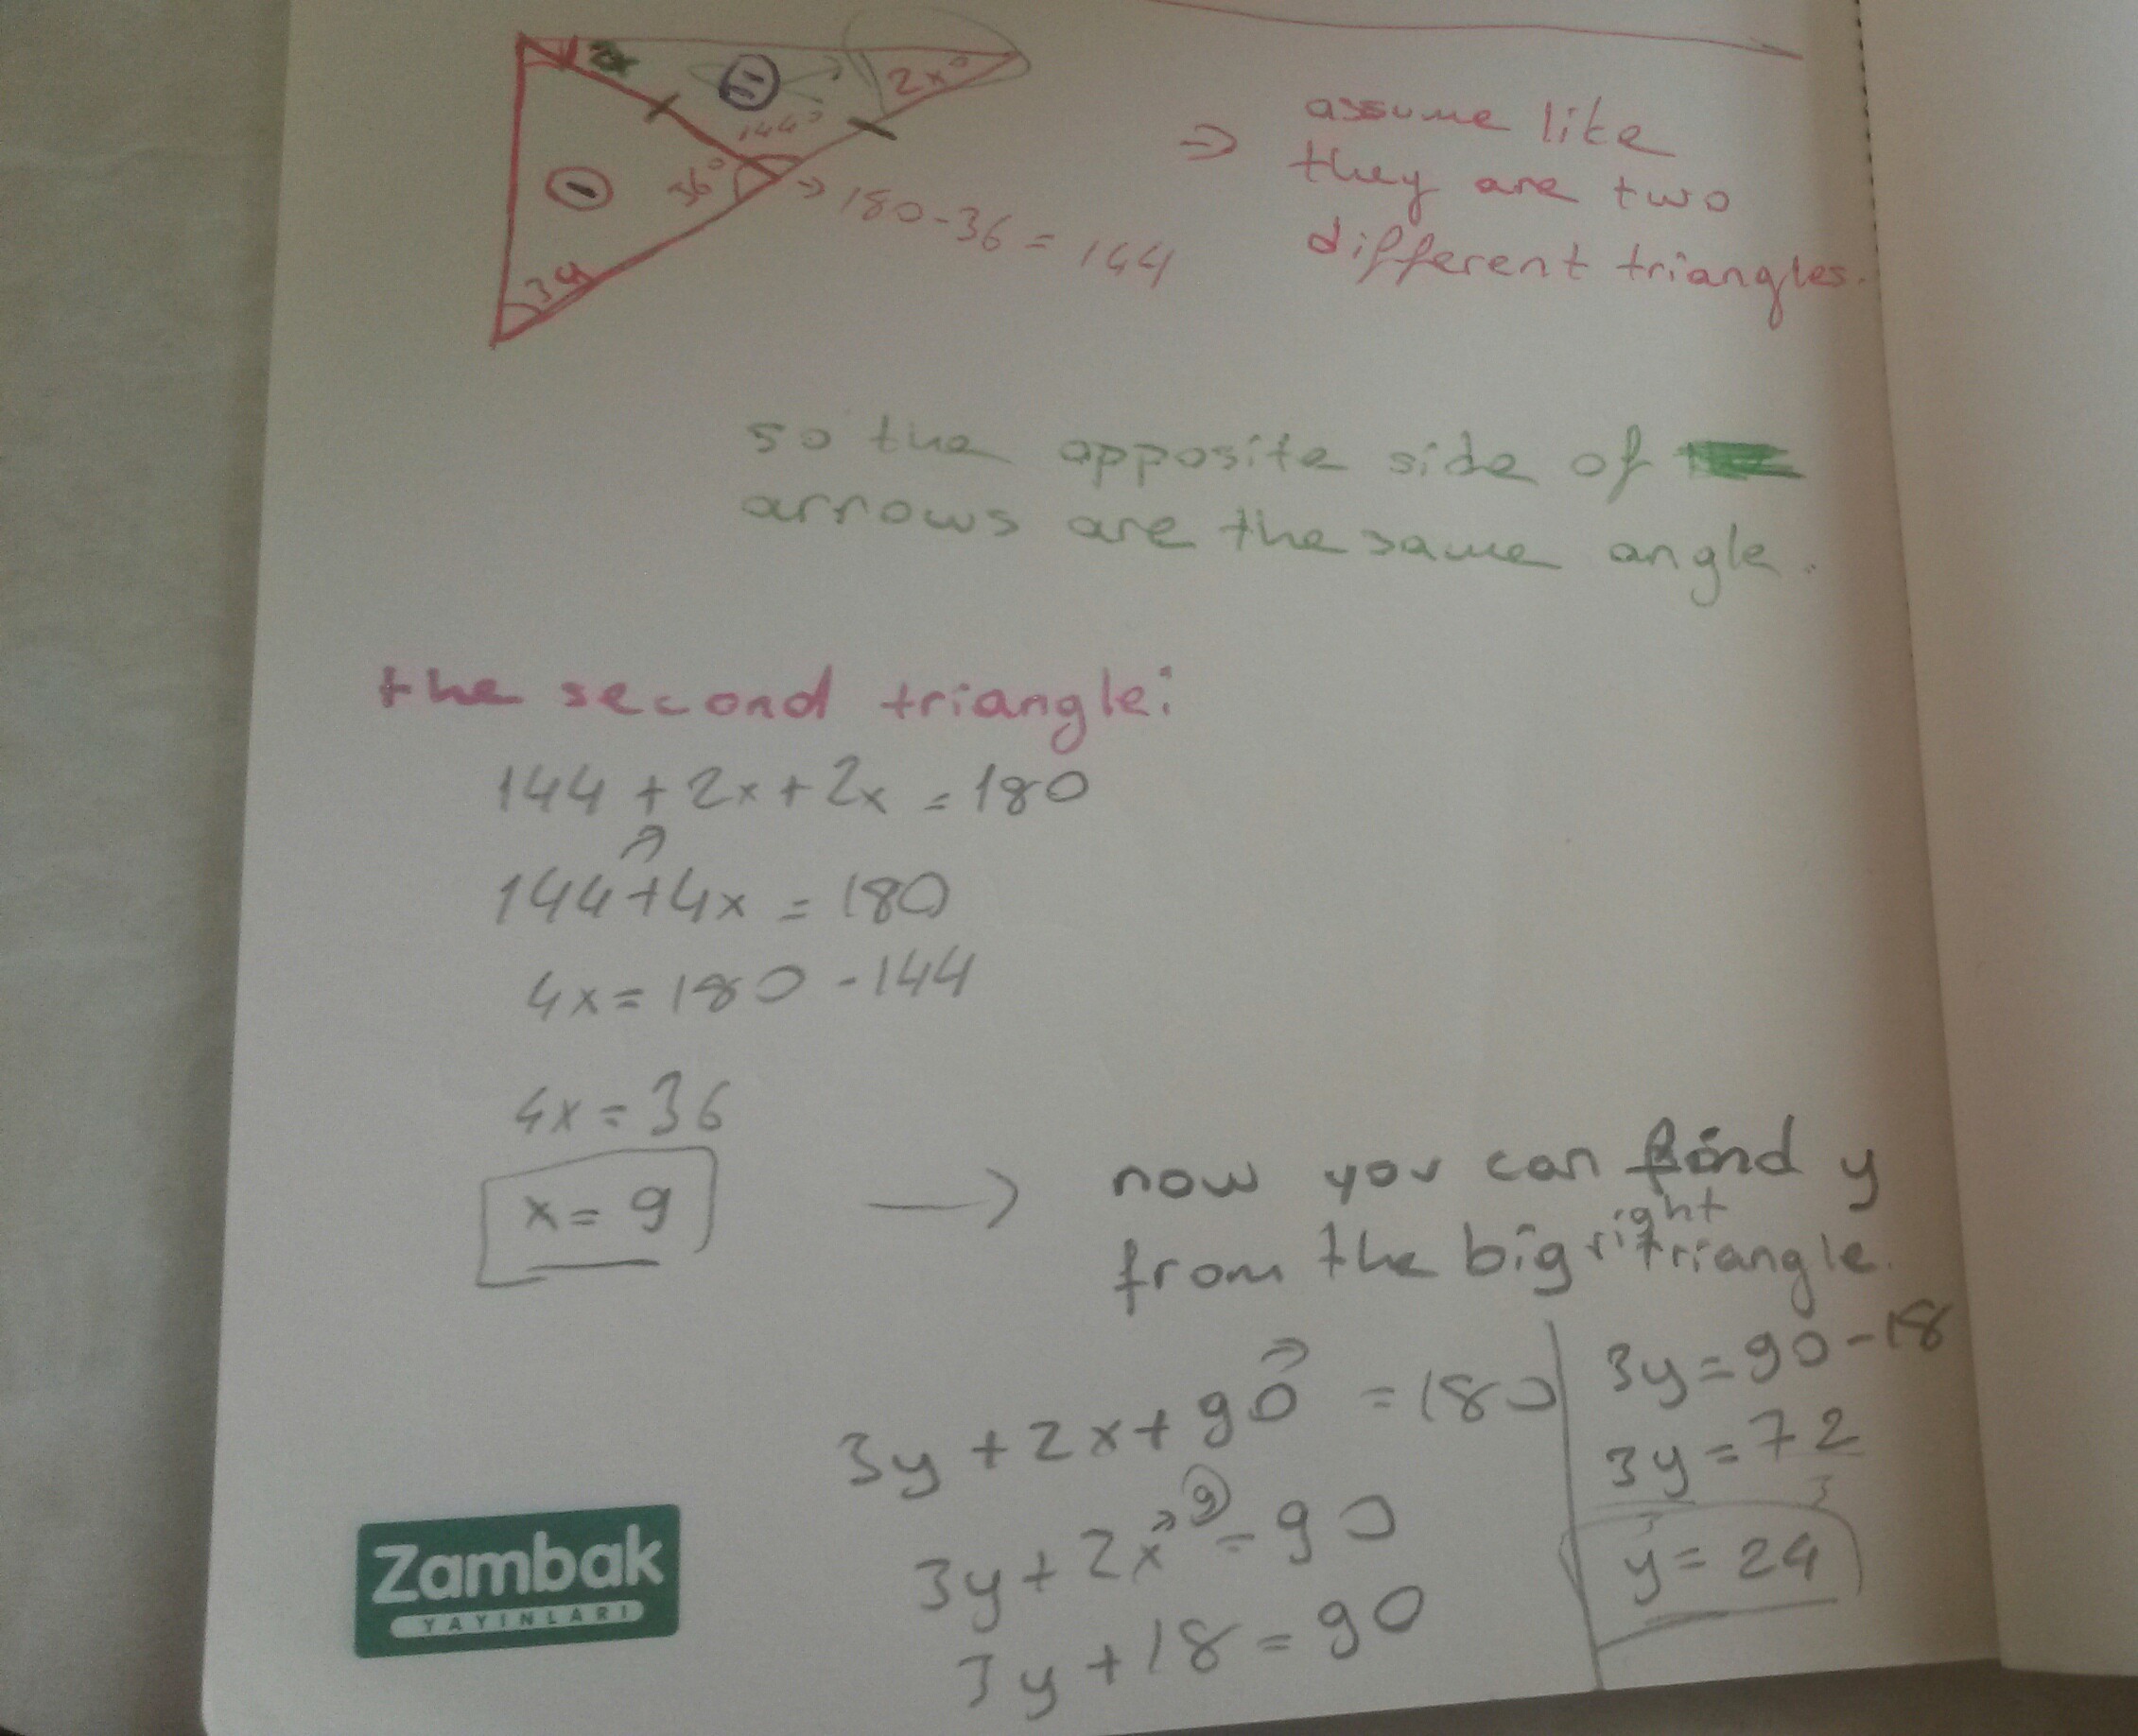 2x
II
2x°
144°
36°
I
3y
⇒ 180-36 = 144
⇒ assume like
they are two
different triangles.
so the opposite side of
arrows are the same angle.
the second triangle:
144 + 2x + 2x = 180
144 + 4x = 180
4x = 180 - 144
4x = 36
x = 9
→ now you can find y
from the big right triangle.
3y + 2x + 90 = 180
3y + 2x = 90
9
3y + 18 = 90
3y = 90 - 18
3y = 72
3 3
y = 24
Zambak
YAYINLARI